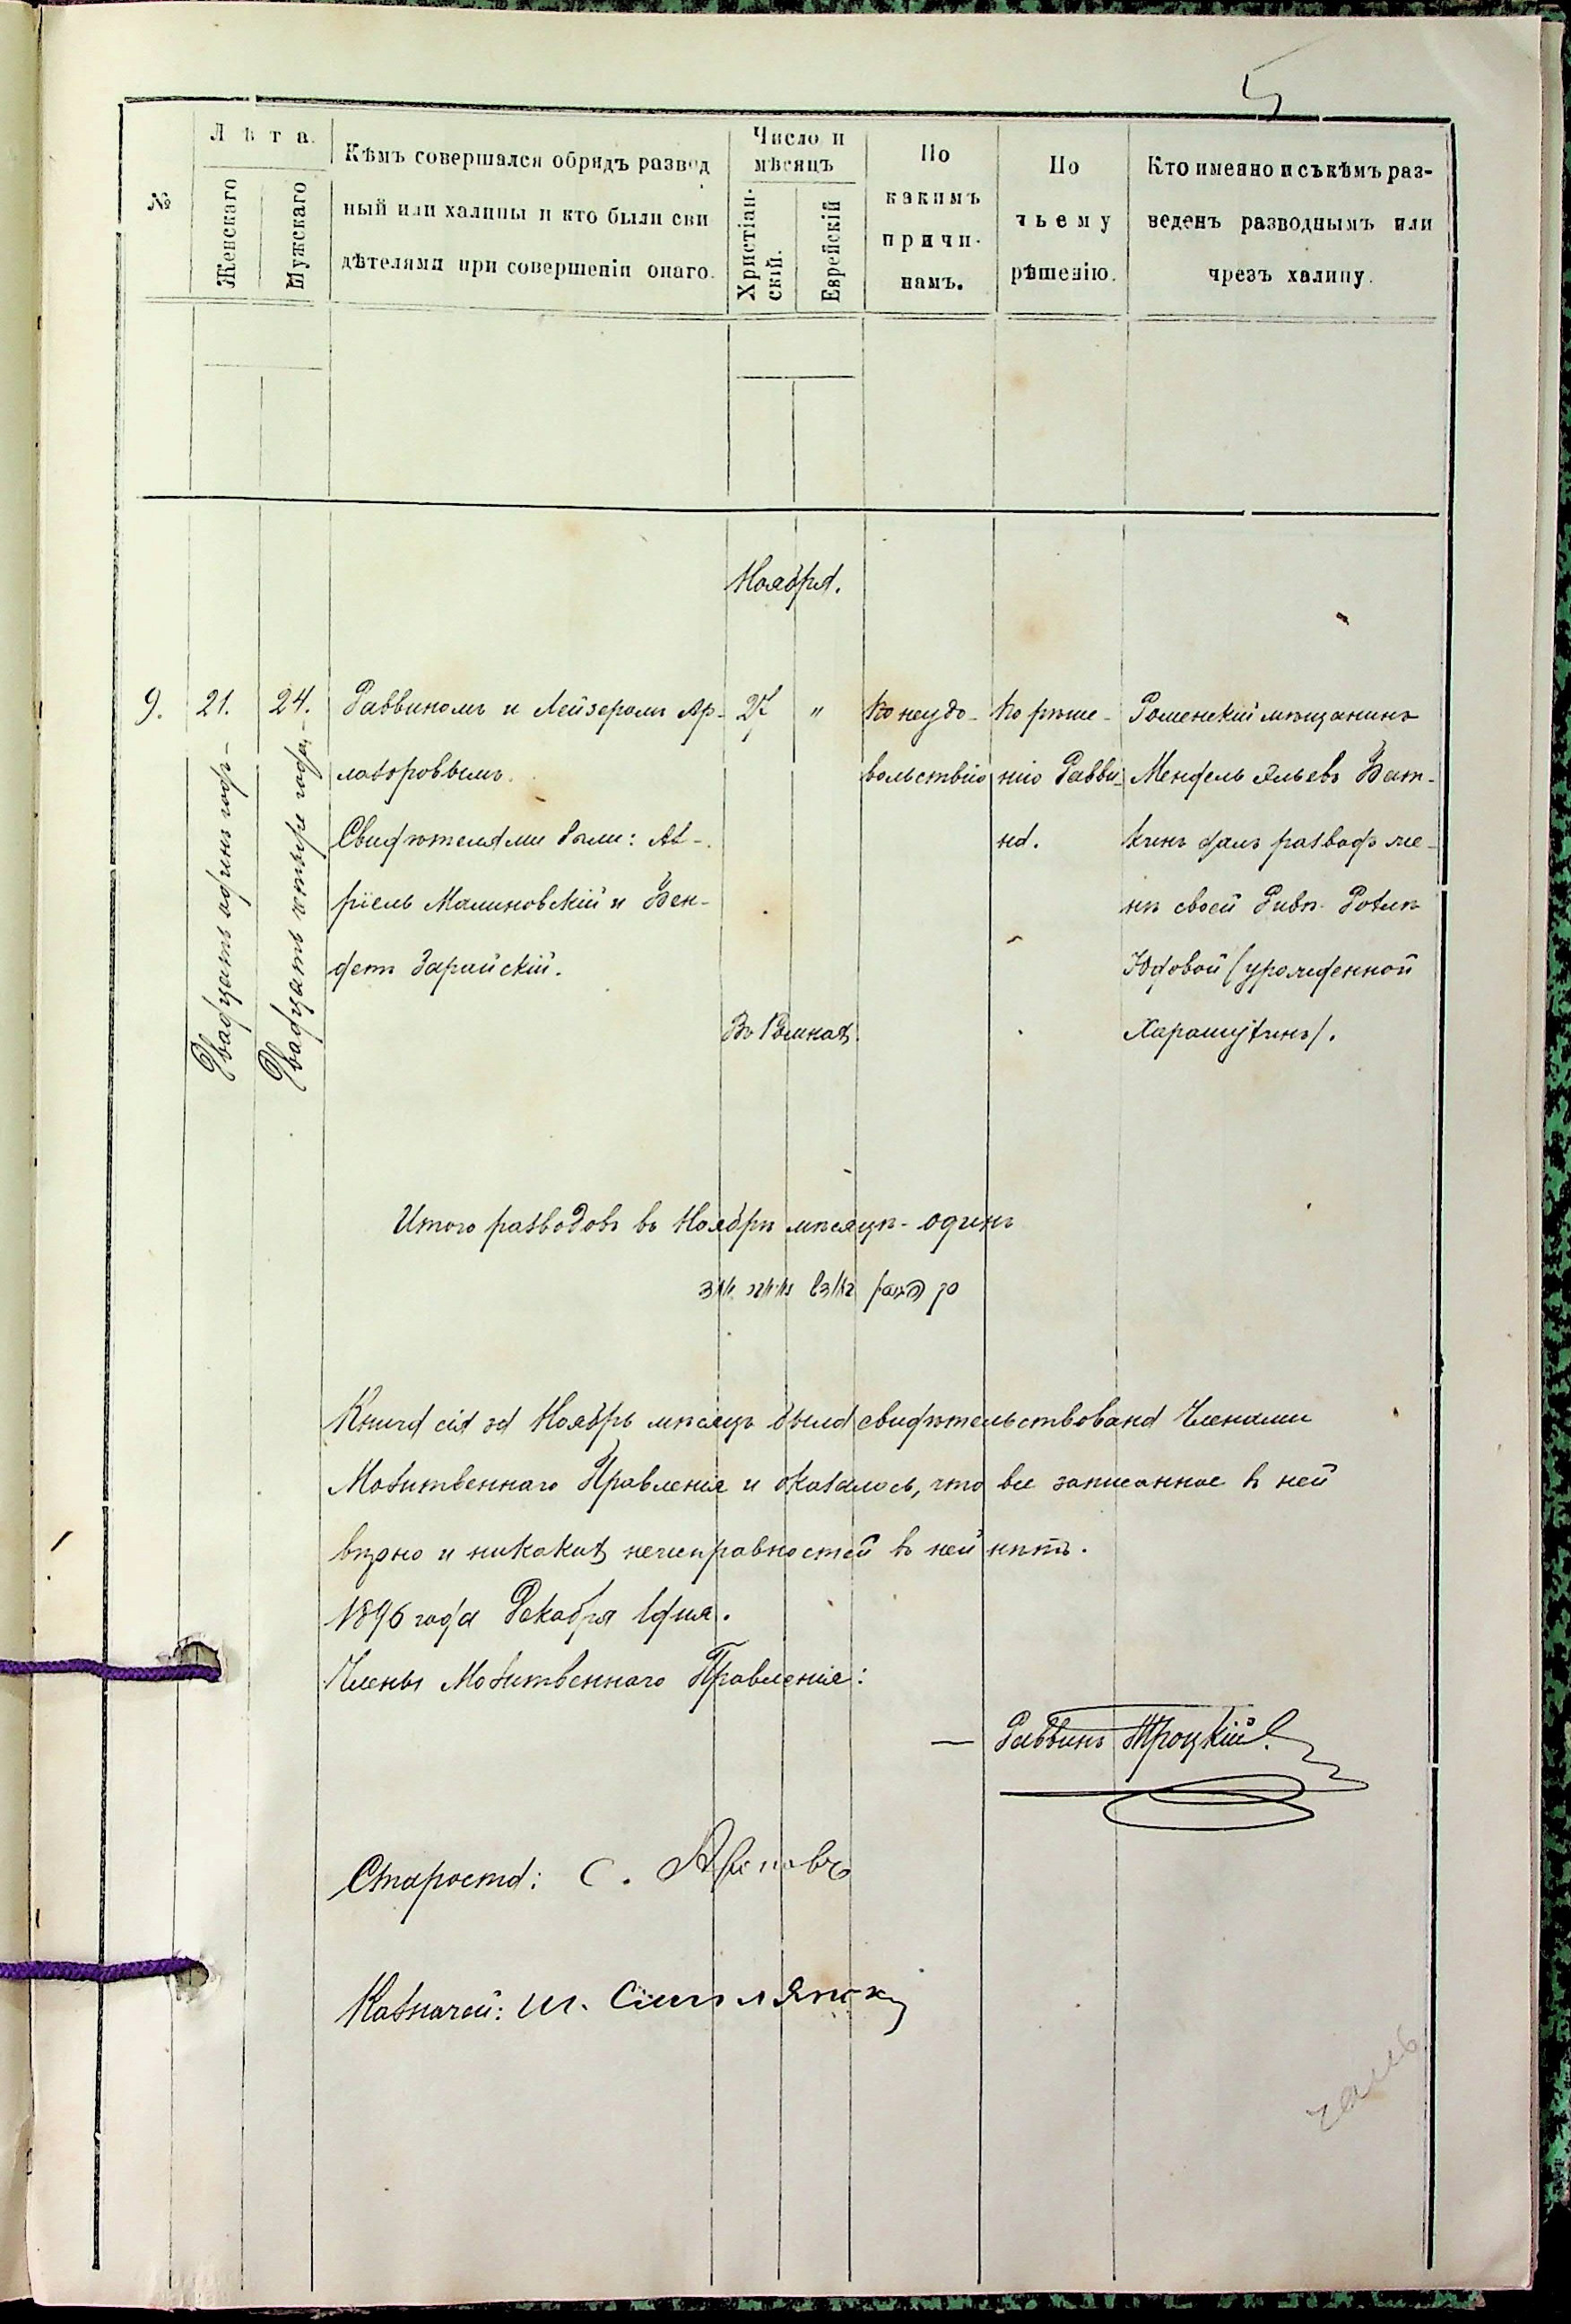 5
№
Лѣта.
Женскаго
Мужскаго
Кѣмъ совершался обрядъ развод
ный или халицы и кто были сви
дѣтелями при совершеніи онаго.
Число и
мѣсяцъ
Христіан-
скій.
Еврейскій
По
какимъ
причи-
намъ.
По
чьему
рѣшенію.
Кто именно и съ кѣмъ раз-
веденъ разводнымъ или
чрезъ халицу.
Ноября.
9.
21.
Двадцать одинъ годъ-
24.
Двадцать четыре года,-
Раввиномъ и Лейзеромъ Ар-
лозоровымъ.
Свидѣтелями были: Аз-
ріель Малиновскій и Бен-
детъ Зарайскій.
27
"
Въ Ромнахъ.
По неудо-
вольствію
По рѣше-
нію Равви-
на.
Роменскій мѣщанинъ
Мендель Эльевъ
далъ разводъ же-
нѣ своей Ривѣ-Розѣ
Юдовой (урожденной
Итого разводовъ въ Ноябрѣ мѣсяцѣ - одинъ
Книга сія за Ноябрь мѣсяцъ была свидѣтельствована Членами
Молитвеннаго Правленія и оказалось, что все записанное въ ней
вѣрно и никакихъ неисправностей въ ней нѣтъ.
1896 года Декабря 1 дня.
Члены Молитвеннаго Правленія:
— Раввинъ Троцкій.
Староста: С.
Казначей: Ш.